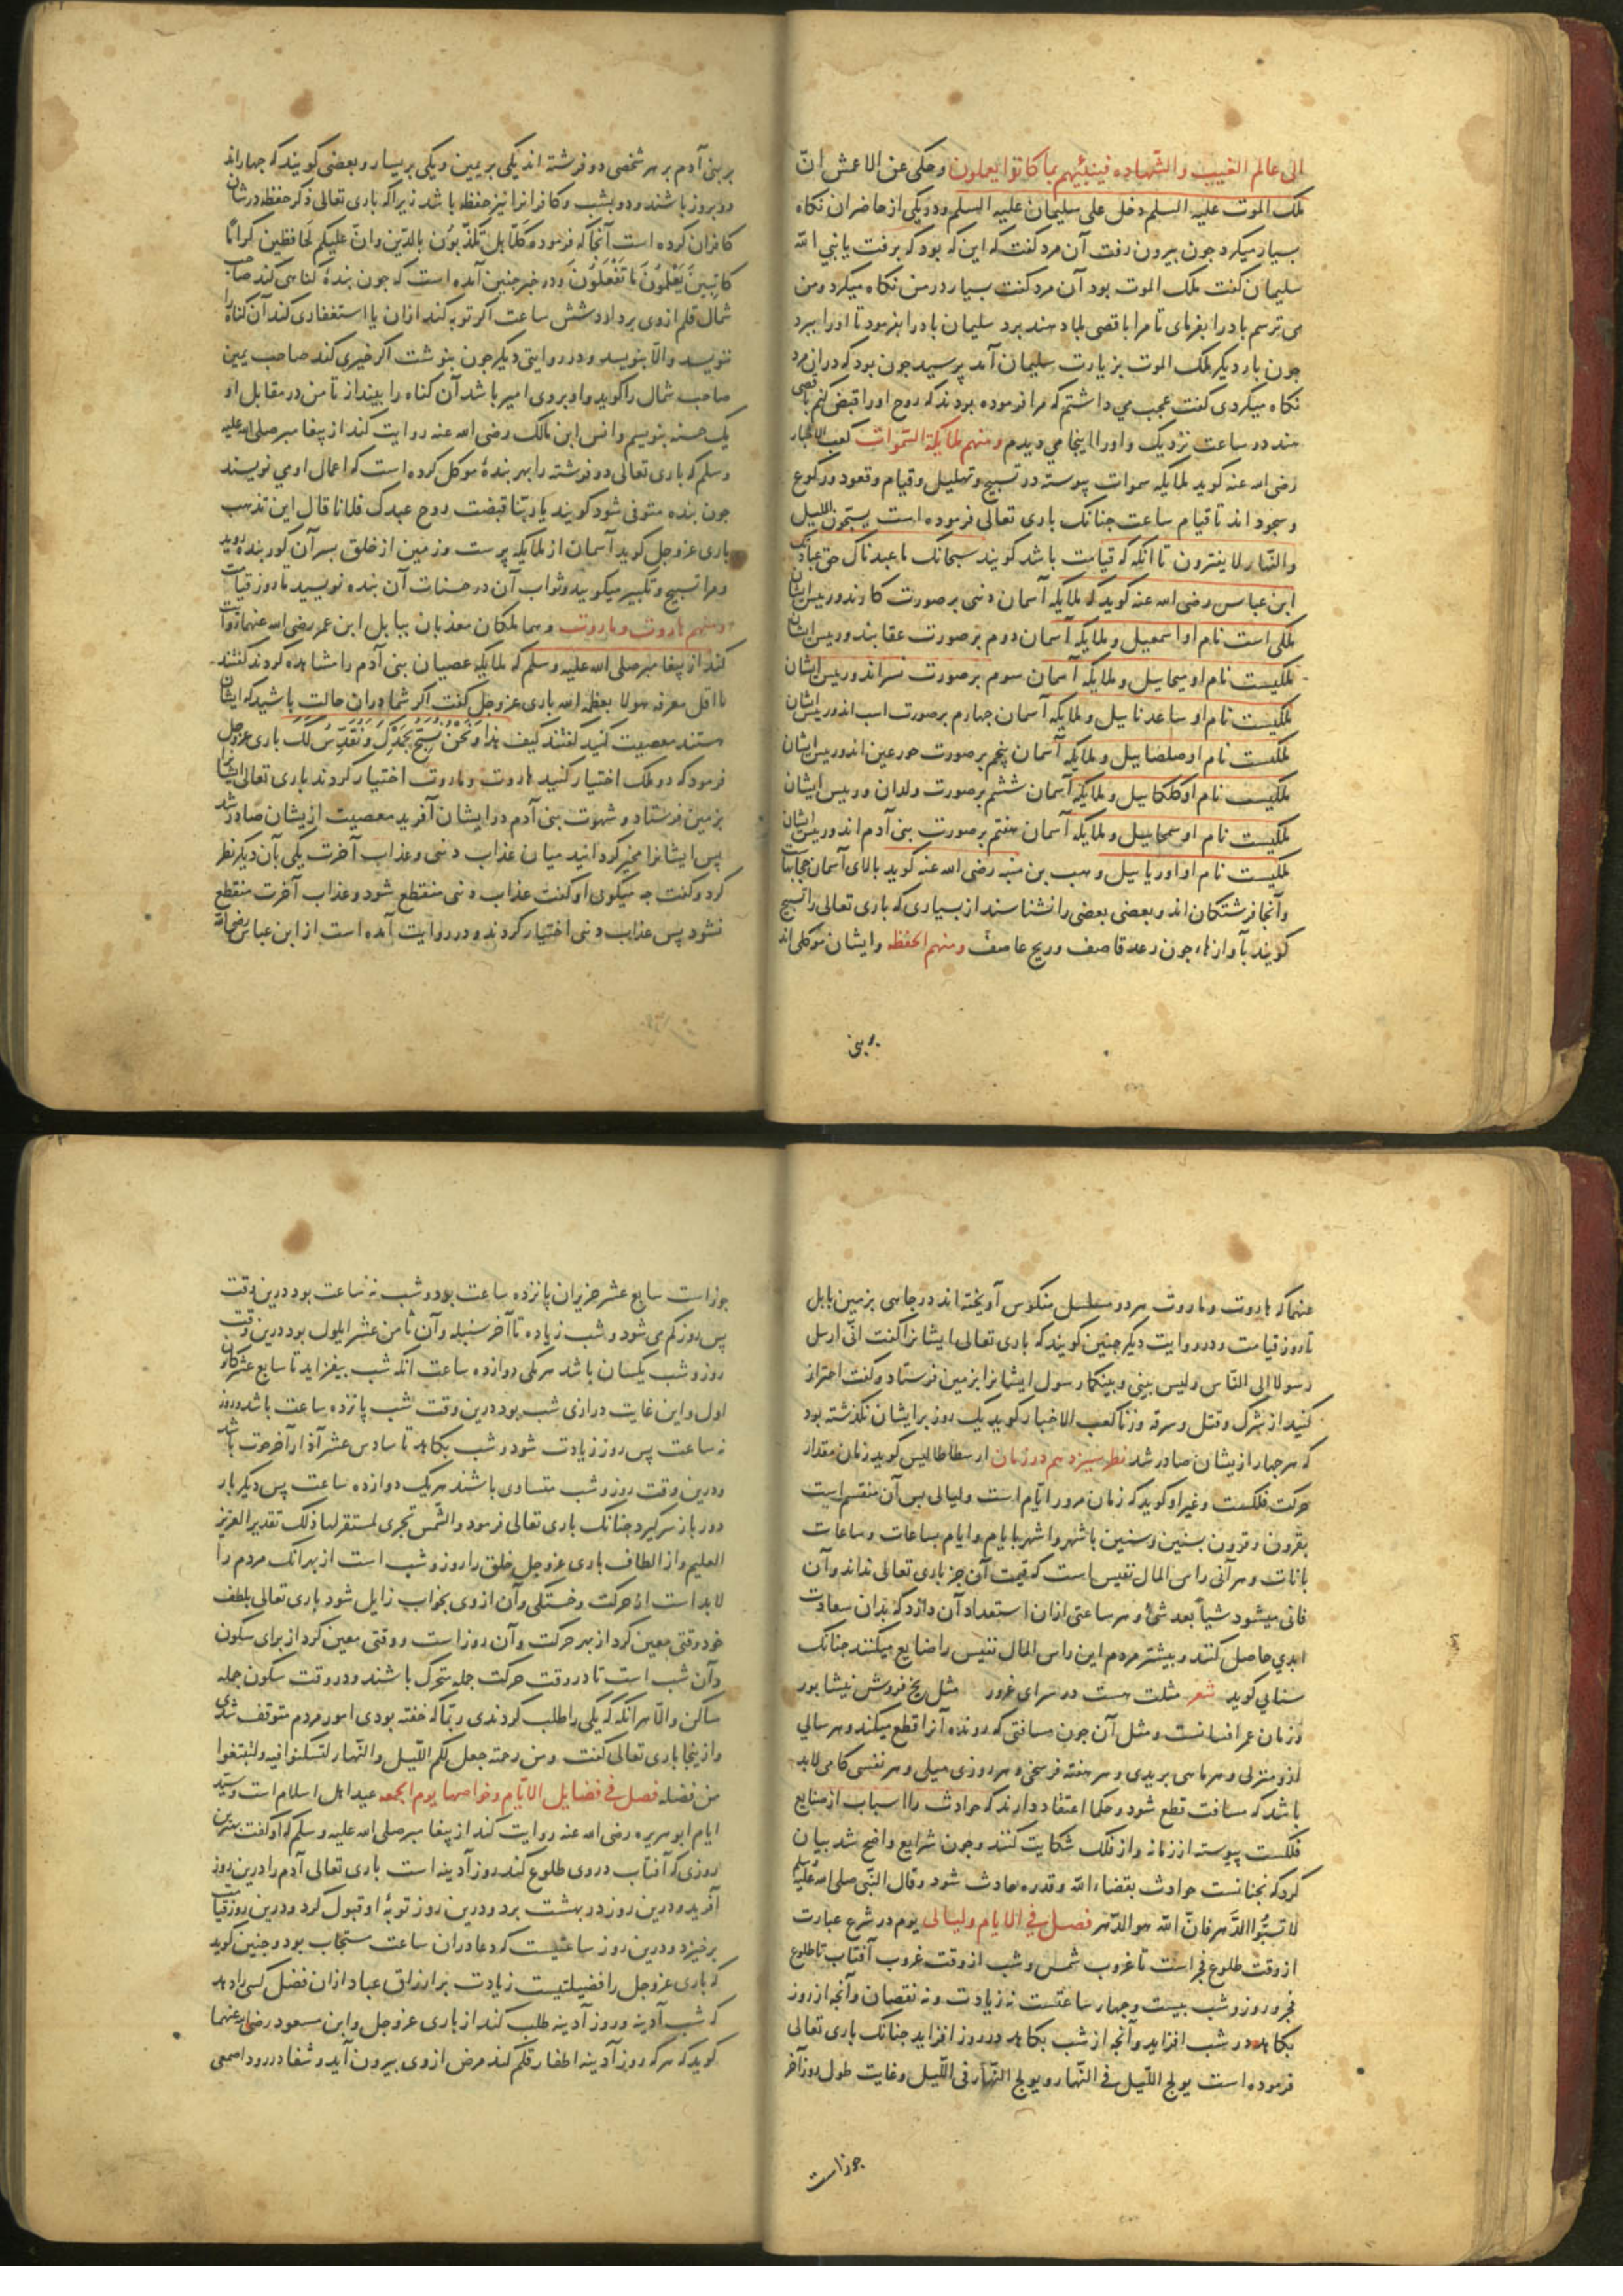 الی عالم الغیب والشهاده فینبئهم بما کانوا یعملون وحکی عن الاعمش انّ
ملک الموت علیه السلم دخل علی سلیمان علیه السلم ودر یکی از حاضران نکاه
بسیار میکرد جون بیرون رفت آن مرد کفت که این که بود که برفت یا نبی الله
سلیمان کفت ملک الموت بود آن مرد کفت بسیار در من نکاه میکرد ومن
می ترسم باد را بفرمای تا مرا باقصی بلاد هند برد سلیمان باد را بفرمود تا او را ببرد
جون بار دیکر ملک الموت بزیارت سلیمان آمد پرسید جون بود که در ان مرد
نکاه میکردی کفت عجب می داشتم که مرا فرموده بودند که روح او را قبض کنم باقصی
هند در ساعت نزدیک واو را اینجا می دیدم ومنهم ملایکة السموات کعب الاخبار
رضی الله عنه کوید ملایکه سموات پیوسته در تسبیح وتهلیل وقیام وقعود ورکوع
وسجود اند تا قیام ساعت جنانک باری تعالی فرموده است یسبحون اللیل
والنّهار لا یفترون تا انکه که قیامت باشد کویند سبحانک ما عبدناک حق عبادتک
ابن عباس رضی الله عنه کوید که ملایکه آسمان دنیی بر صورت کاوند ورییس ایشان
ملکی است نام او اسمعیل وملایکه آسمان دوم بر صورت عقابند ورییس ایشان
ملکیست نام او میحاییل وملایکه آسمان سوم بر صورت نسراند ورییس ایشان
ملکیست نام او ساعدناییل وملایکه آسمان جهارم بر صورت اسب اند ورییس ایشان
ملکیست نام او صلصاییل وملایکه آسمان پنجم بر صورت حور عین اند ورییس ایشان
ملکیست نام او کلکاییل وملایکه آسمان ششم بر صورت ولدان ورییس ایشان
ملکیست نام او سمحاییل وملایکه آسمان هفتم بر صورت بنی آدم اند ورییس ایشان
ملکیست نام او اوریاییل وهب بن منبه رضی الله عنه کوید بالای آسمان حجابهاست
وآنجا فرشتکان اند وبعضی بعضی را نشناسند از بسیاری که باری تعالی را تسبیح
کویند بآوازها جون رعد قاصف وریح عاصف ومنهم الحفظه وایشان موکلی اند
بر بنی
بر بنی آدم بر هر شخصی دو فرشته اند یکی بر یمین ویکی بر یسار وبعضی کویند که جهار اند
دو بروز باشند ودو بشب وکافرانرا نیز حفظه باشد زیرا که باری تعالی ذکر حفظه در شان
کافران کرده است آنجا که فرموده کلّا بل تکذّبون بالدّین وانّ علیکم لحافظین کراما
کاتبین یعلمون ما تفعلون ودر خبر جنین آمده است که جون بندۀ کناهی کند صاحب
شمال قلم از وی بردارد شش ساعت اکر توبه کند از ان یا استغفاری کند آن کناه را
ننویسد والّا بنویسد ودر روایتی دیکر جون بنوشت اکر خیری کند صاحب یمین
صاحب شمال را کوید واو بر وی امیر باشد آن کناه را بینداز تا من در مقابل او
یک حسنه بنویسم وانس ابن مالک رضی الله عنه روایت کند از پیغامبر صلی الله علیه
وسلم که باری تعالی دو فرشته را بهر بندۀ موکل کرده است که اعمال او می نویسند
جون بنده متوفی شود کویند یا ربّنا قبضت روح عبدک فلانا قال این نذهب
باری عز وجل کوید آسمان از ملایکه پرست وزمین از خلق بسر آن کور بنده روید
ومرا تسبیح وتکبیر میکویید وثواب آن در حسنات آن بنده نویسید تا روز قیامت
ومنهم هاروت وماروت وهما ملکان معذبان ببابل ابن عمر رضی الله عنهما روایت
کند از پیغامبر صلی الله علیه وسلم که ملایکه عصیان بنی آدم را مشاهده کردند کفتند
ما اقل معرفه هولا بعظمه الله باری عز وجل کفت اکر شما در ان حالت باشید که ایشان
هستند معصیت کنید کفتند کیف هذا ونحن نسبّح بحمدک ونقدّس لک باری عز وجل
فرمود که دو ملک اختیار کنید هاروت وماروت اختیار کردند باری تعالی ایشانرا
بزمین فرستاد وشهوت بنی آدم در ایشان آفرید معصیت ازیشان صادر شد
پس ایشانرا مخیر کردانید میان عذاب دنیی وعذاب آخرت یکی بآن دیکر نظر
کرد وکفت جه میکوی او کفت عذاب دنیی منقطع شود وعذاب آخرت منقطع
نشود پس عذاب دنیی اختیار کردند ودر روایت آمده است از ابن عباس رضی الله
عنهما که هاروت وماروت هر دو مسلسل منکوس آویخته اند در جاهی بزمین بابل
تا روز قیامت ودر روایت دیکر جنین کویند که باری تعالی ایشانرا کفت انّی ارسل
رسولا الی النّاس ولیس بینی وبینکما رسول ایشانرا بزمین فرستاد وکفت احتراز
کنید از شرک وقتل وسرقه وزنا کعب الاخبار کوید یک روز بر ایشان نکذشته بود
که هر جهار ازیشان صادر شد نظر سیزدهم در زمان ارسطاطالیس کوید زمان مقدار
حرکت فلکست وغیر او کوید که زمان مرور ایّام است ولیالی پس آن منقسم است
بقرون وقرون بسنین وسنین باشهر واشهر بایام وایام بساعات وساعات
بانات وهر آنی راس المال نفیس است که قیمت آن جز باری تعالی نداند وآن
فانی میشود شیأ بعد شئ وهر ساعتی از ان استعداد آن دارد که بدان سعادت
ابدی حاصل کنند وبیشتر مردم این راس المال نفیس را ضایع میکنند جنانک
سنایی کوید شعر مثلت هست در سرای غرور مثل یخ فروش نیشابور
وزمان عمر انسانست ومثل آن جون مسافتی که رونده آنرا قطع میکند وهر سالی
از و منزلی وهر ماهی بریدی وهر هفته فرسخی وهر روزی میلی وهر نفسی کامی لابد
باشد که مسافت قطع شود وحکما اعتقاد دارند که حوادث را اسباب از صنایع
فلکست پیوسته از زمانه واز فلک شکایت کنند وجون شرایع واضح شد بیان
کرد که نجنانست حوادث بقضاء الله وقدره حادث شود وقال النّبی صلی الله علیه وسلم
لا تسبّوا الدّهر فانّ الله هو الدّهر فصل فی الایام ولیالی یوم در شرع عبارت
از وقت طلوع فجر است تا غروب شمس وشب از وقت غروب آفتاب تا طلوع
فجر وروز وشب بیست وجهار ساعتست نه زیادت ونه نقصان وآنجه از روز
بکاهد در شب افزاید وآنجه از شب بکاهد در روز افزاید جنانک باری تعالی
فرموده است یولج اللّیل فی النّهار ویولج النّهار فی اللّیل وغایت طول روز آخر
جوزاست
جوزاست سابع عشر حزیران پانزده ساعت بود وشب نه ساعت بود درین وقت
پس روز کم می شود وشب زیاده تا آخر سنبله وآن ثامن عشر ایلول بود درین وقت
روز وشب یکسان باشد هر یکی دوازده ساعت انکه شب بیفزاید تا سابع عشر کانون
اول واین غایت درازی شب بود درین وقت شب پانزده ساعت باشد وروز
نه ساعت پس روز زیادت شود وشب بکاهد تا سادس عشر آذار آخر حوت باشد
ودرین وقت روز وشب متساوی باشند هر یک دوازده ساعت پس دیکر بار
دور باز سر کیرد جنانک باری تعالی فرمود والشّمس تجری لمستقرلها ذلک تقدیر العزیز
العلیم واز الطاف باری عز وجل خلق را روز وشب است از بهر انک مردم را
لابد است از حرکت وخستکی وآن از وی بخواب زایل شود باری تعالی بلطف
خود وقتی معین کرد از بهر حرکت وآن روز است ووقتی معین کرد از برای سکون
وآن شب است تا در وقت حرکت جمله متحرک باشند ودر وقت سکون جمله
ساکن والّا هر انکه که یکی را طلب کردندی ربّما که خفته بودی امور مردم متوقف شدی
وازینجا باری تعالی کفت ومن رحمته جعل لکم اللّیل والنّهار لتسکنوا فیه ولتبتغوا
من فضله فصل فی فضایل الایّام وخواصها یوم الجمعه عید اهل اسلام است وسیّد
ایام ابو هریره رضی الله عنه روایت کند از پیغامبر صلی الله علیه وسلم که او کفت بهترین
روزی که آفتاب در وی طلوع کند روز آدینه است باری تعالی آدم را درین روز
آفرید ودرین روز در بهشت برد ودرین روز توبۀ او قبول کرد ودرین روز قیامت
برخیزد ودرین روز ساعتیست که دعا در ان ساعت مستجاب بود وجنین کوید
که باری عز وجل را فضیلتیست زیادت بر ارزاق عباد از ان فضل کسی را دهد
که شب آدینه وروز آدینه طلب کند از باری عز وجل وابن مسعود رضی الله عنهما
کوید که هر که روز آدینه اظفار قلم کند مرض از وی بیرون آید وشفا در رود اصمعی